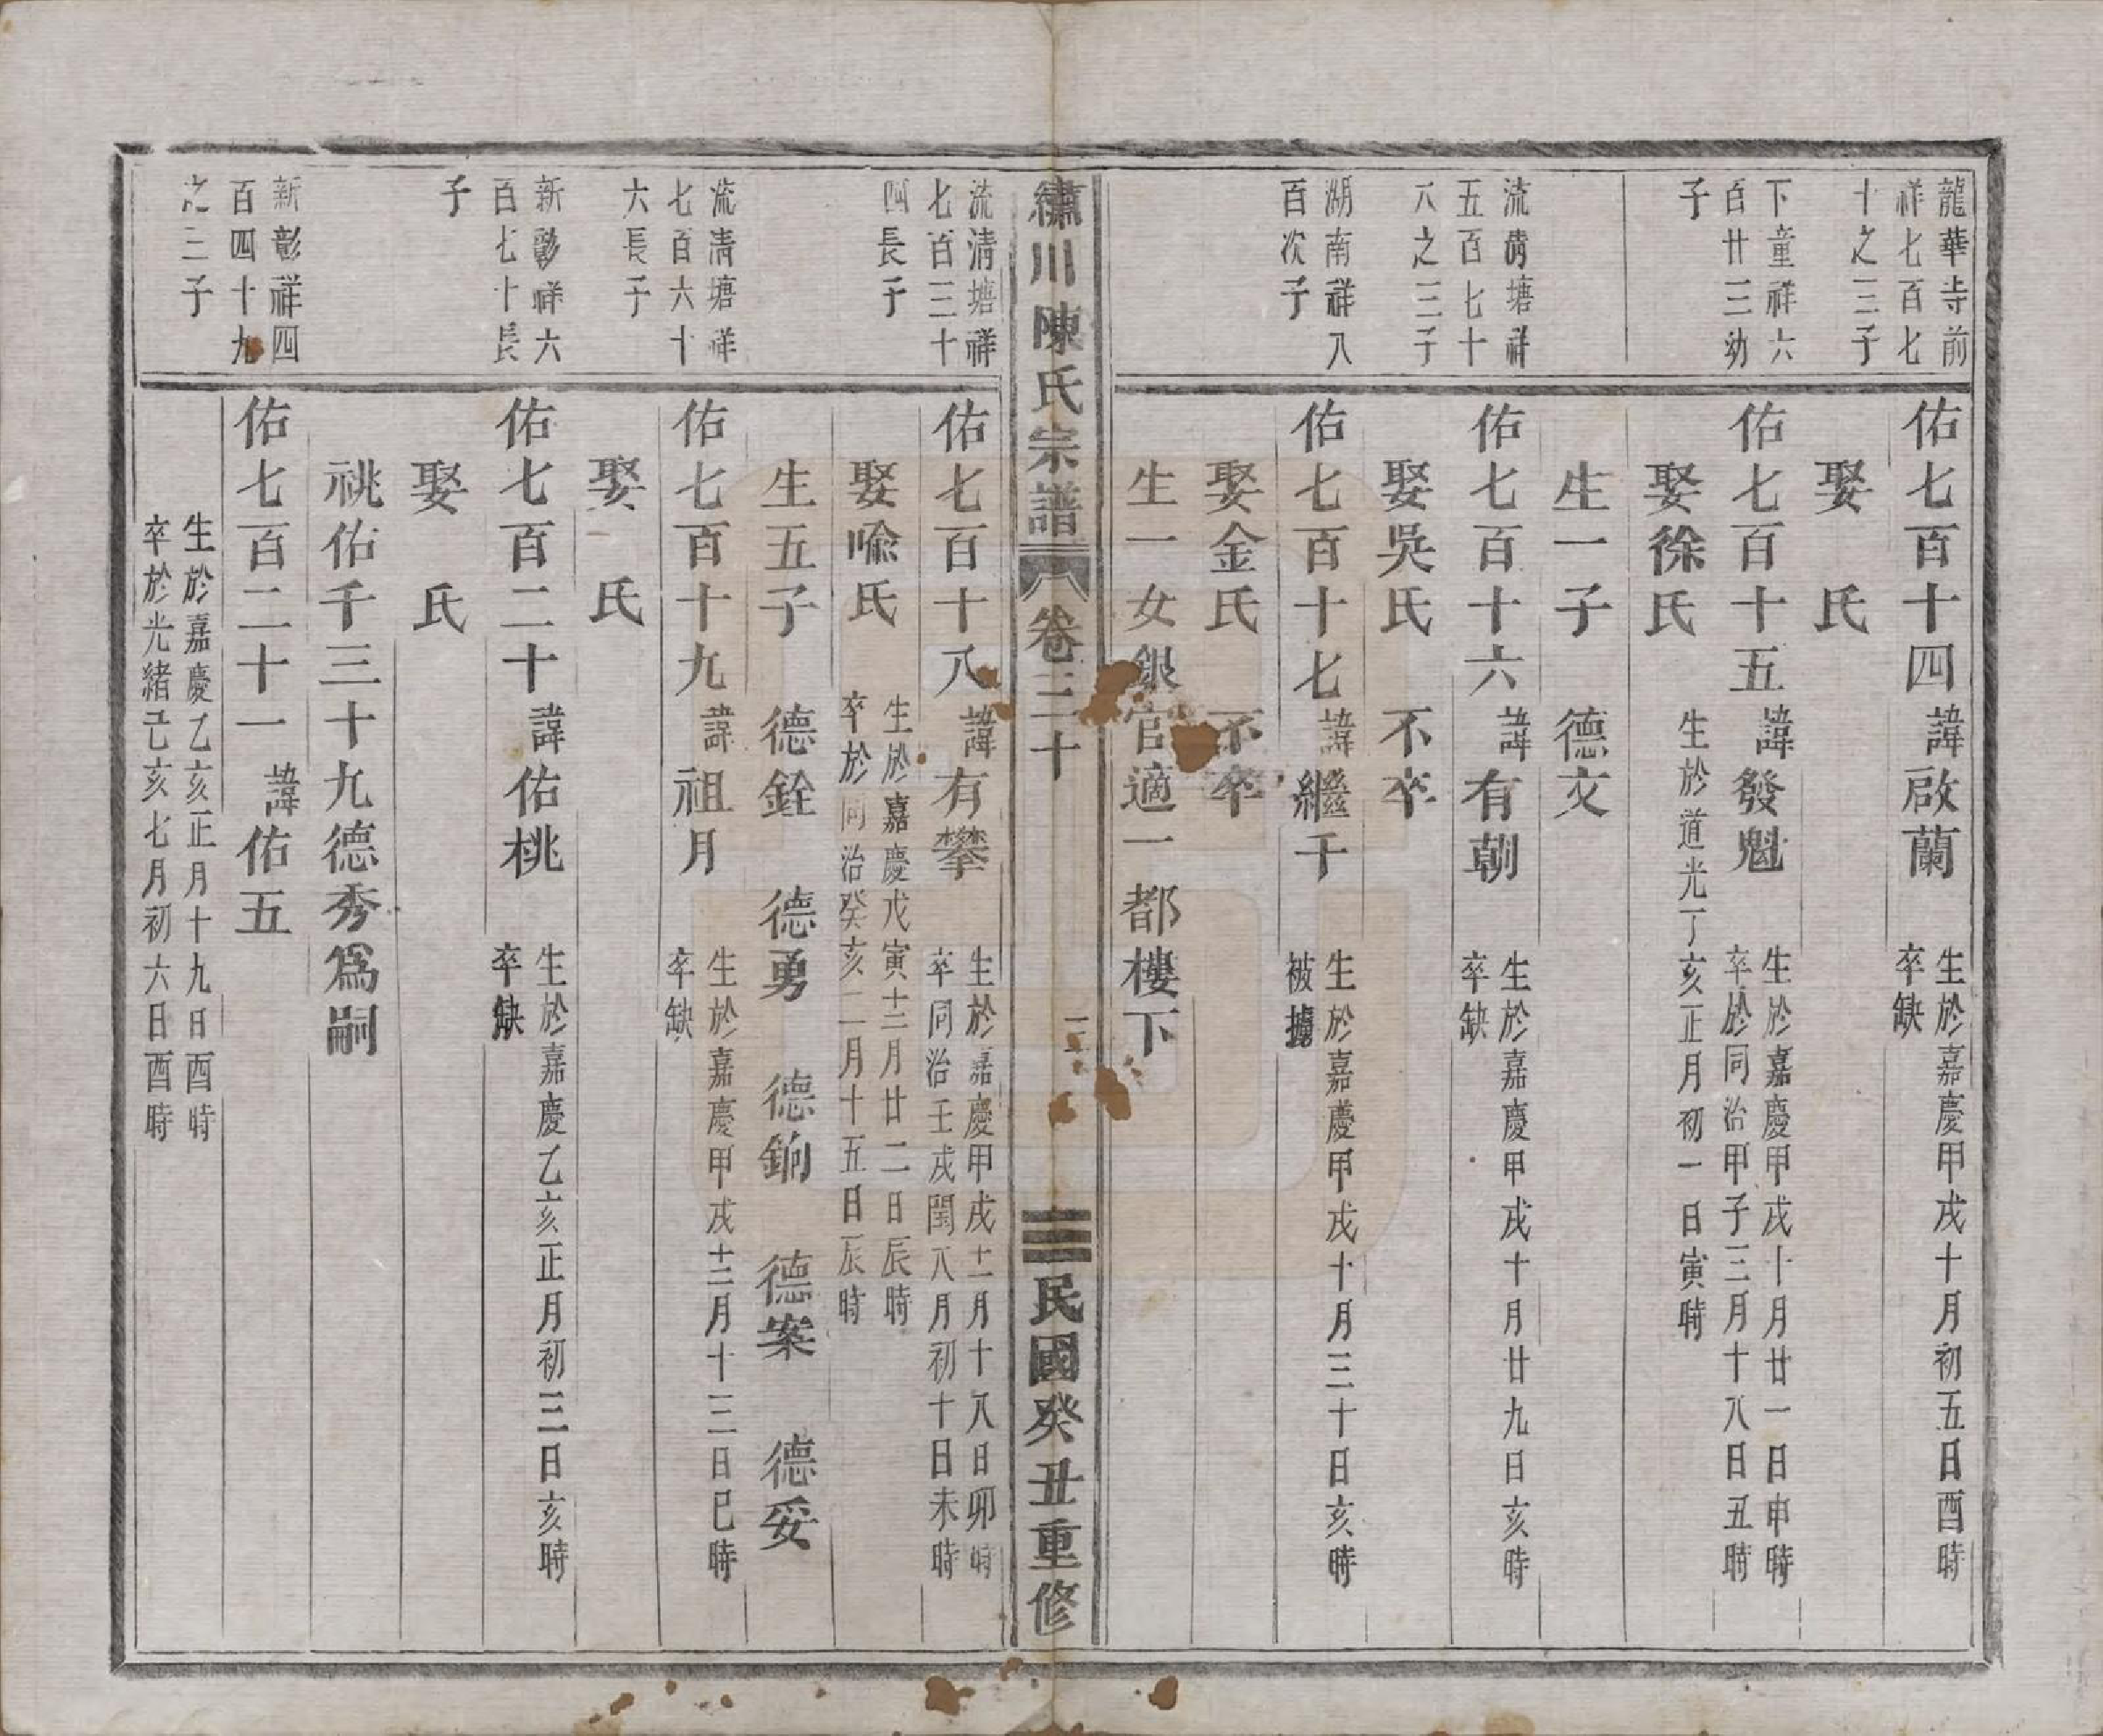 龍華寺前
祥七百七
十之三子
佑七百十四諱啟蘭
生於嘉慶甲戌十月初五日酉時
卒缺
娶 氏
下童祥六
百廿三幼
子
佑七百十五諱發魁
生於嘉慶甲戌十月廿一日申時
卒於同治甲子三月十八日丑時
娶徐氏
生於道光丁亥正月初一日寅時
生一子 德文
流清塘祥
五百七十
八之三子
佑七百十六諱有朝
生於嘉慶甲戌十月廿九日亥時
卒缺
娶吳氏 不卒
湖南祥八
百次子
佑七百十七諱繼千
生於嘉慶甲戌十月三十日亥時
被擄
娶金氏 不卒
生一女銀官適一都樓下
繡川陳氏宗譜
卷三十
民國癸丑重修
流清塘祥
七百三十
四長子
佑七百十八諱有攀
生於嘉慶甲戌十二月十八日卯時
卒同治壬戌閏八月初十日未時
娶喩氏
生於嘉慶戊寅十二月廿二日辰時
卒於同治癸亥二月十五日辰時
生五子 德銓 德勇 德鉤 德案 德妥
流清塘祥
七百六十
六長子
佑七百十九諱祖月
生於嘉慶甲戌十二月十三日巳時
卒缺
娶 氏
新彰祥六
百七十長
子
佑七百二十諱佑桃
生於嘉慶乙亥正月初三日亥時
卒缺
娶 氏
祧佑千三十九德秀爲嗣
新彰祥四
百四十九
之三子
佑七百二十一諱佑五
生於嘉慶乙亥正月十九日酉時
卒於光緒己亥七月初六日酉時